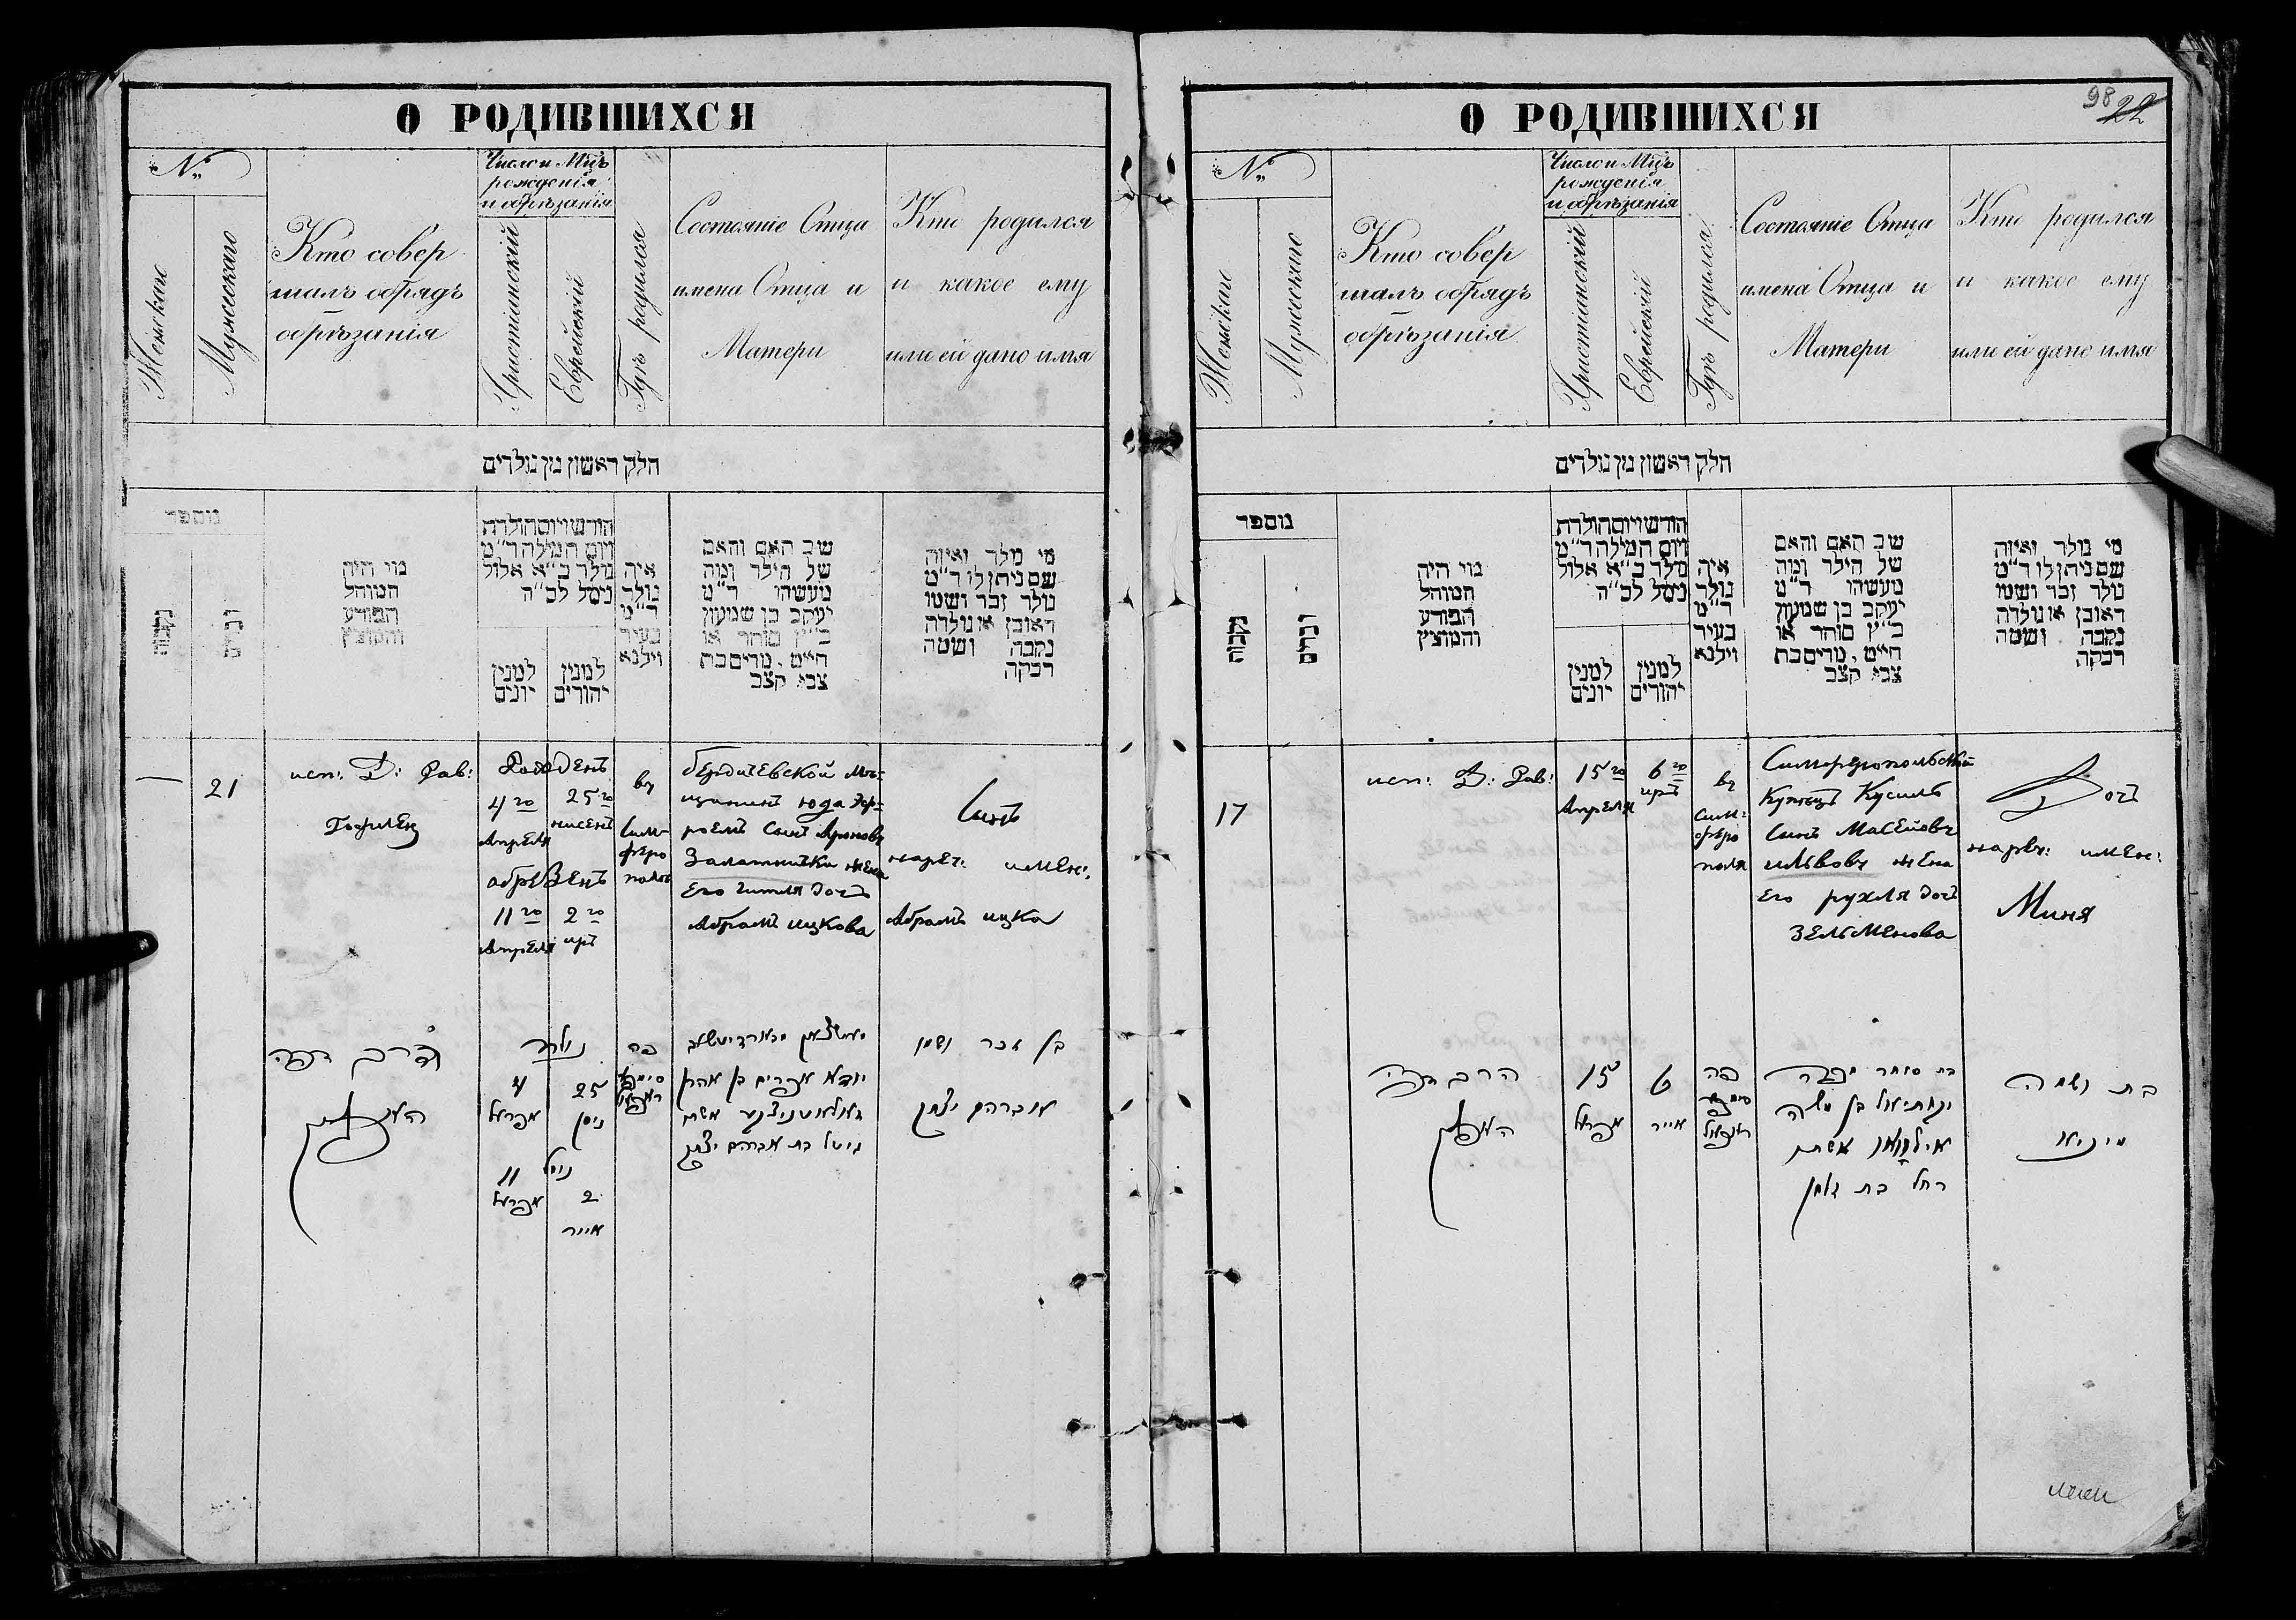 О РОДИВШИХСЯ
№
Женскаго
Мужескаго
Кто совер
шалъ обрядъ
обрѣзанія
Число и Мцъ
рожденія
и обрѣзанія
Христіанскій
Еврейскій
Гдѣ родился
Состояніе Отца
имена Отца и
Матери
Кто родился
и какое ему
или ей дано имя
חלק ראשון מן נולדים
מספר
נקבות
זכרים
מי היה
המוהל
הפורע
והמוצץ
חודש ויום הולדת
ויום המילה ד"מ
נולד כ"א אלול
נימל לכ"ה
למנין
יונים
למנין
יהודים
איה
נולד
ד"מ
בעיר
וילנא
שם האב והאם
של הילד ומה
מעשהו ד"מ
יעקב בן שמעון
כ"ץ סוחר או
חייט, מרים בת
צבי קצב
מי נולד ואיזה
שם ניתן לו ד"מ
נולד זכר ושמו
ראובן או נולדה
נקבה ושמה
רבקה
21
исп: Д: Рав:
Гофилец
Рожденъ
4го 25го
Апреля нисенъ
обрезенъ
11го 2го
Апреля иръ
въ
Сим-
феро
поль
бердичевской мѣ-
щанинъ юда Эф-
роемъ Сынъ Ароновъ
Залатничка жена
его гитля дочъ
Абрамъ ицкова
Сынъ
нареч: имен:
Абрамъ ицка
הרב דפה
נולד
4 25
אפריל ניסן
נימול
11 2
אפריל אייר
פה
יודא אפרים בן אהרן
גיטל בת אברהם יצחק
בן זכר ושמו
אברהם יצחק
О РОДИВШИХСЯ
98 22
№
Женскаго
Мужескаго
Кто совер
шалъ обрядъ
обрѣзанія
Число и Мцъ
рожденія
и обрѣзанія
Христіанскій
Еврейскій
Гдѣ родился
Состояніе Отца
имена Отца и
Матери
Кто родился
и какое ему
или ей дано имя
חלק ראשון מן נולדים
מספר
נקבות
זכרים
מי היה
המוהל
הפורע
והמוצץ
חודש ויום הולדת
ויום המילה ד"מ
נולד כ"א אלול
נימל לכ"ה
למנין
יונים
למנין
יהודים
איה
נולד
ד"מ
בעיר
וילנא
שם האב והאם
של הילד ומה
מעשהו ד"מ
יעקב בן שמעון
כ"ץ סוחר או
חייט, מרים בת
צבי קצב
מי נולד ואיזה
שם ניתן לו ד"מ
נולד זכר ושמו
ראובן או נולדה
נקבה ושמה
רבקה
17
исп: Д: Рав:
15го 6го
Апреля иръ
въ
сим-
феро
поля
Симферопольской
Купецъ Кусиль
Сынъ Мосейовъ
ильвовъ жена
его рухля дочъ
зельменова
Дочъ
нареч: имен:
Миня
הרב דפה
15 6
אפריל אייר
פה
רחל בת זלמן
בת ושמה
מיניא